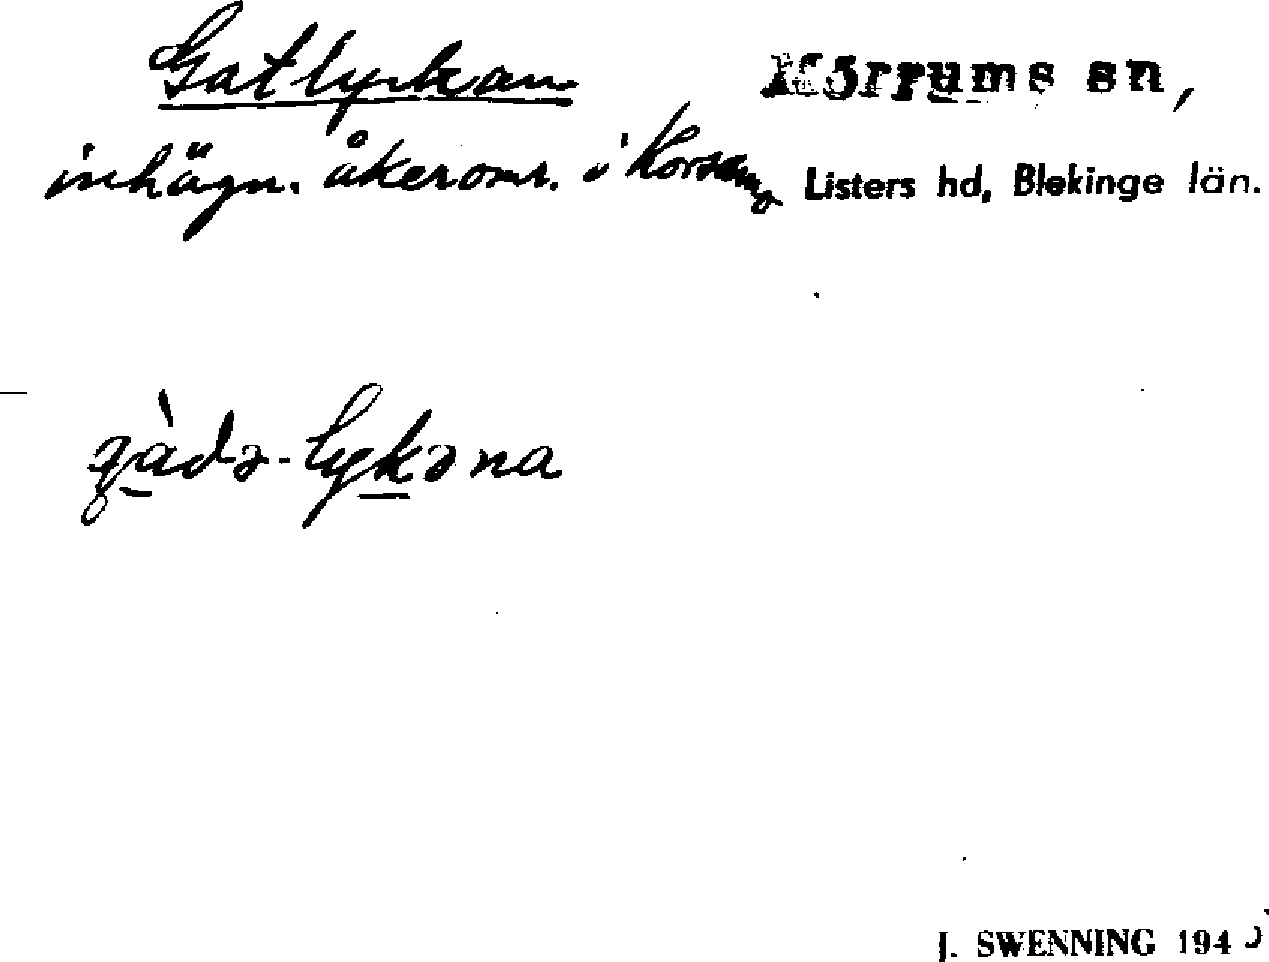 Gatlyckan Mörrums sn,
inhägn. åkeromr. i Listers hd, Blekinge län.
gàdə-lykəna
J. SWENNING 194